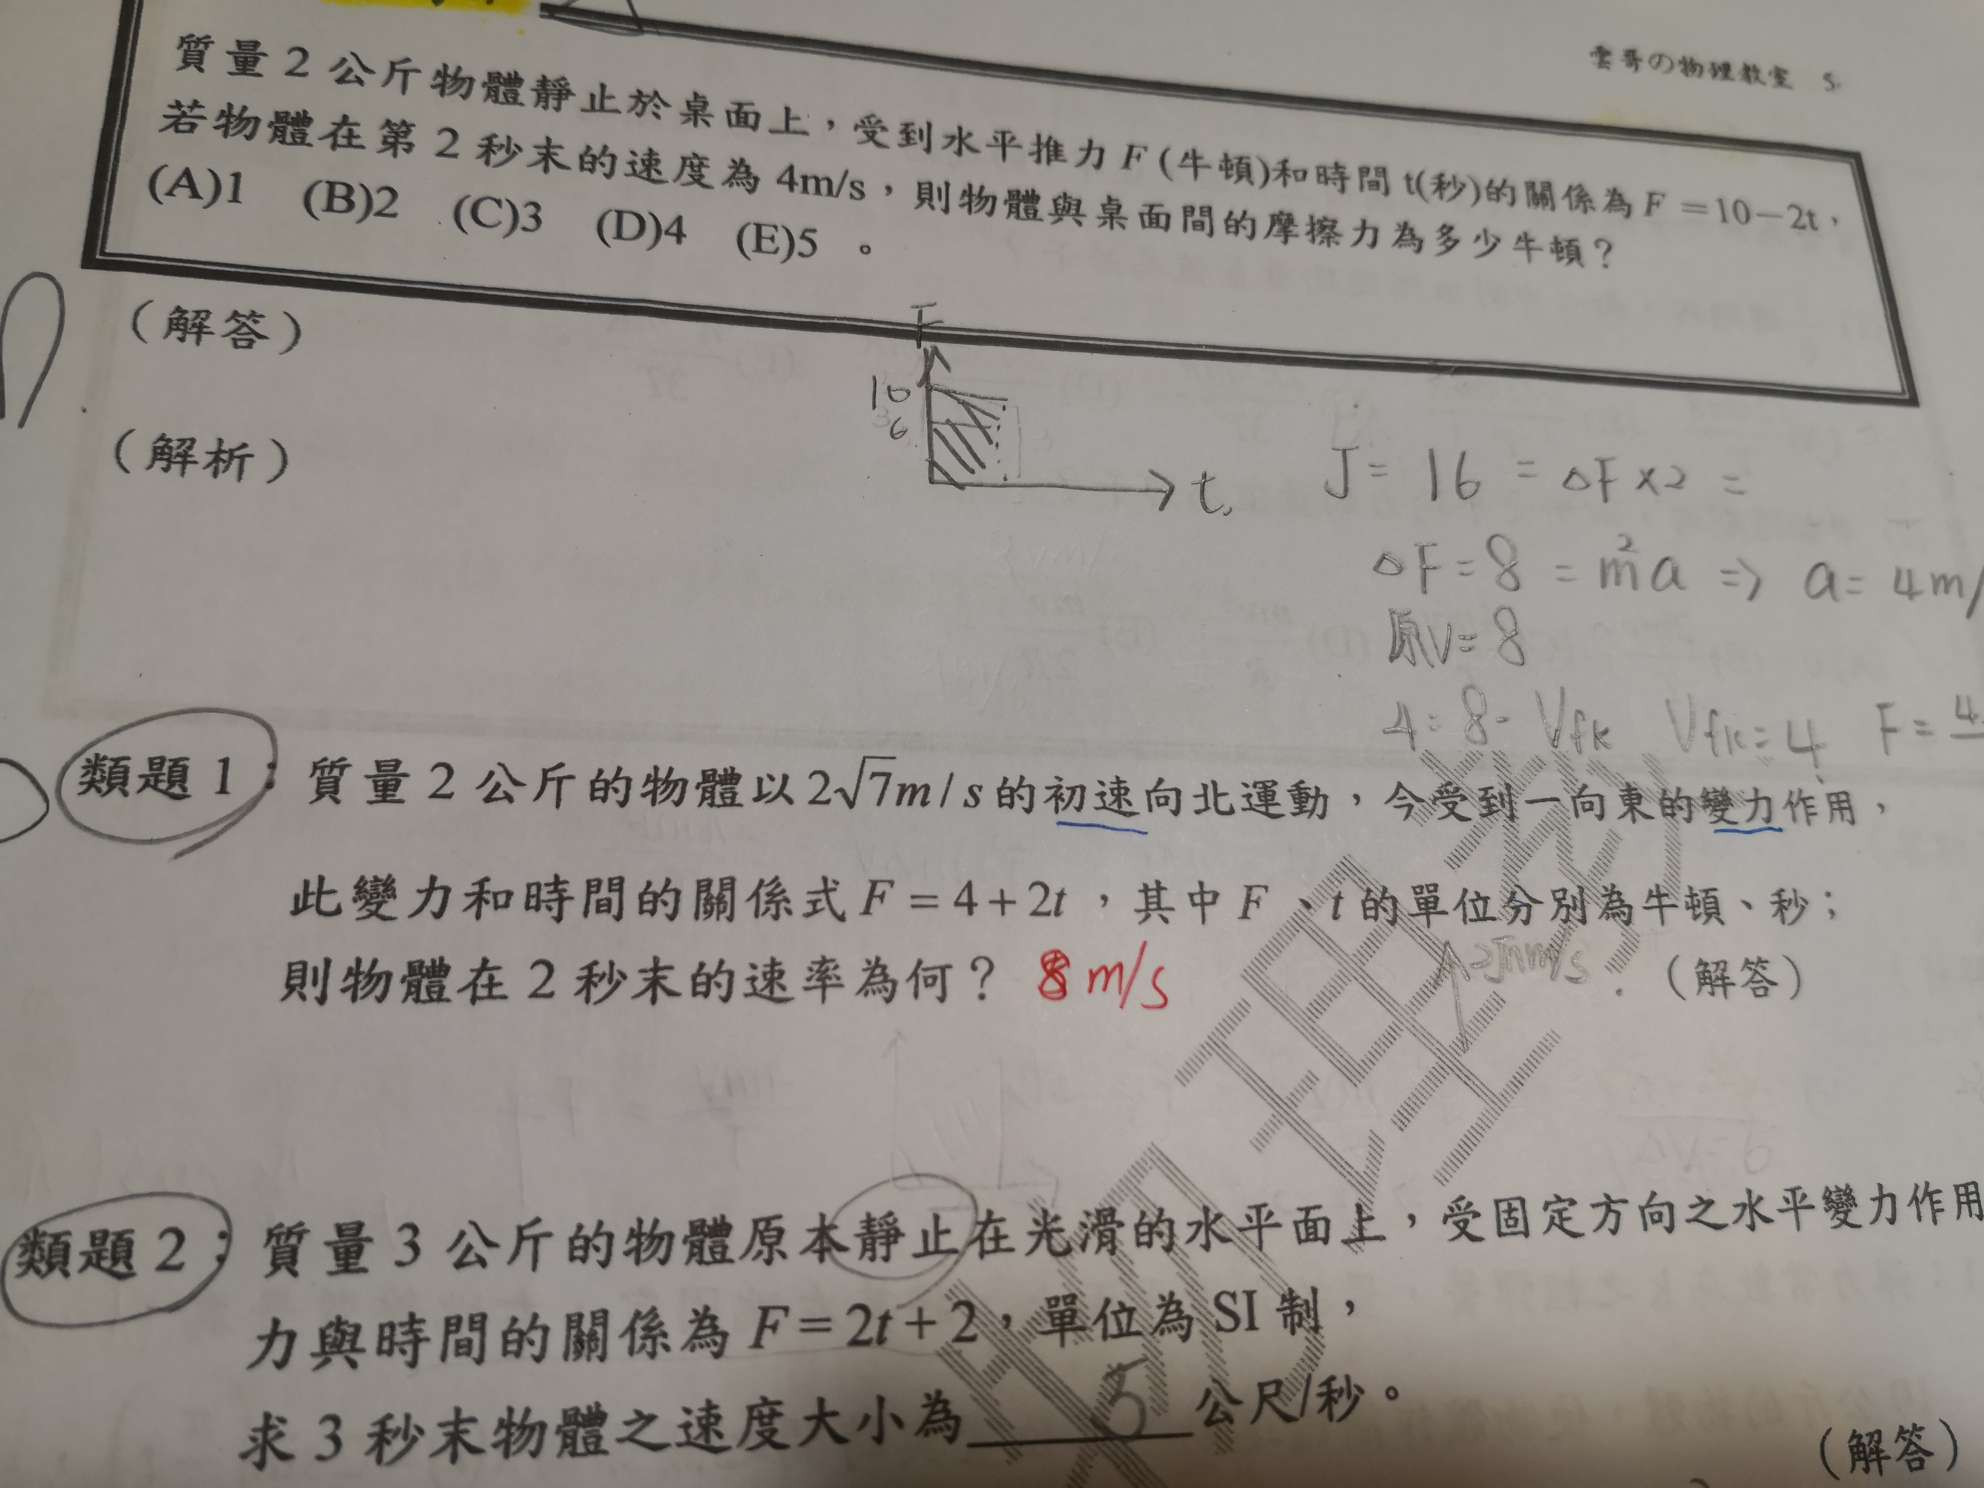 雲哥の物理教室 5
質量 2 公斤物體靜止於桌面上，受到水平推力 F (牛頓)和時間 t(秒)的關係為 F =10－2t，
若物體在第 2 秒末的速度為 4m/s，則物體與桌面間的摩擦力為多少牛頓？
(A)1 (B)2 (C)3 (D)4 (E)5 。
（解答）
F
10
6
t
（解析）
J = 16 = △F x2 =
△F = 8 = m² a => a = 4 m/
原V = 8
4 = 8 - Vfk Vfk = 4 F = 4
類題 1： 質量 2 公斤的物體以 2√7 m/s 的初速向北運動，今受到一向東的變力作用，
此變力和時間的關係式 F = 4 + 2t ，其中 F 、t 的單位分別為牛頓、秒；
則物體在 2 秒末的速率為何？ 8 m/s （解答）
類題 2： 質量 3 公斤的物體原本靜止在光滑的水平面上，受固定方向之水平變力作用
力與時間的關係為 F = 2t + 2，單位為 SI 制，
求 3 秒末物體之速度大小為 5 公尺/秒。
（解答）
物理